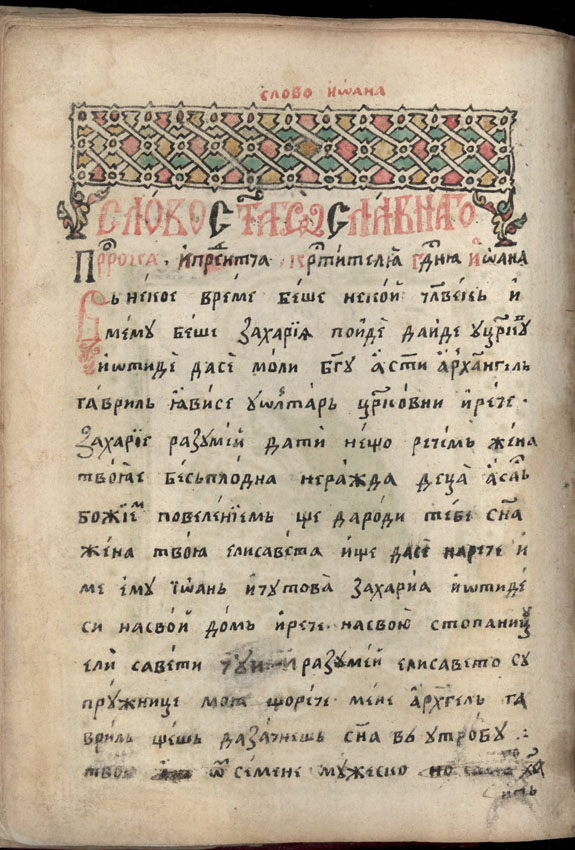 слово иѡана
слово стаго славнаго
пррока и прⷣитча крⷭтителꙗ гдню иѡана
Въ некое време беше некой чл҃векь и
мему беше захарїꙗ пойде дайде у црк҃ву
иѡтиде дасе моли бг҃у а сти арханг҃ель
гаврїиль ꙗвисе у ѡлтарь црк҃ковни и рече
захарїе разумей дати нещо речемь жена
твоꙗ е бесьплодна неражда деца а сась
божїемь повеленїемь ще дароди тебе сн҃а
жена твоꙗ елисавета и ще дасе нарече и
ме ему їѡань и тутова захарїа иѡтиде
си насвой домь и рече насвоюⷤ стопаницу
елисавети разумей елисавето су
пружнице моꙗ щорече мене архг҃ель га
вриль щешь дазачнешь сн҃а въ утробу
твою ѿ семене мужеско но